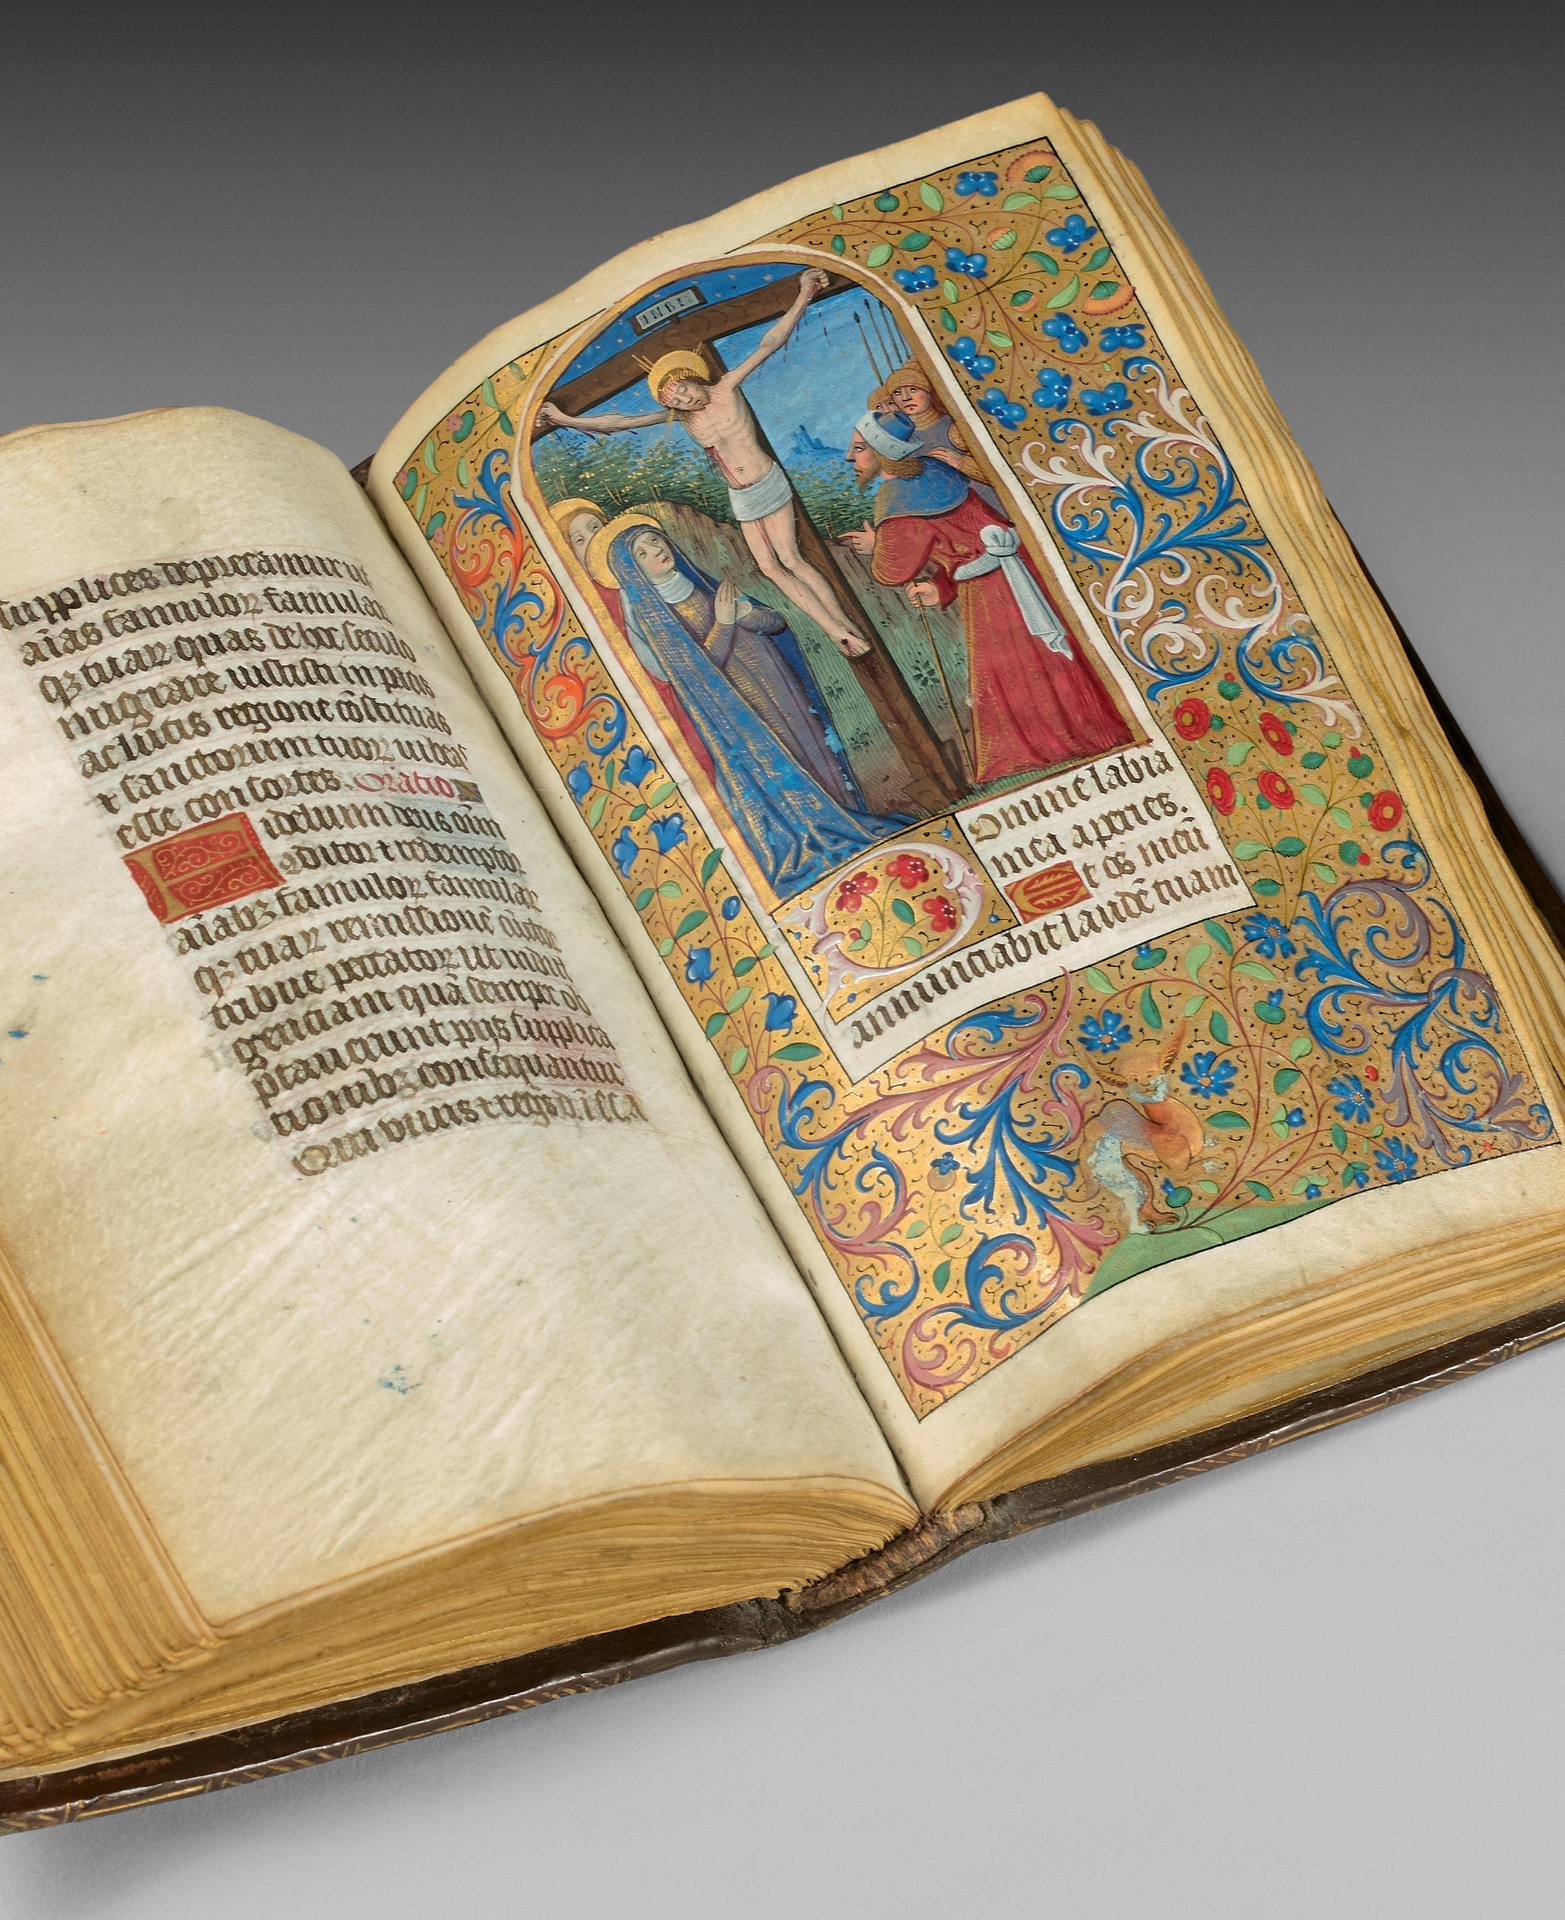 supplices deprecamur ut
aīas famuloꝝ famulaꝝ
qꝫ tuaꝝ quas de hoc seculo
migrare iussisti in pacis
ac lucis regione cōstituas
⁊ sanctorum tuoꝝ iubeas
esse consortes. Oratio
Fidelium deus oīm
conditor ⁊ redemptor
aīabꝫ famuloꝝ famulaꝝ
qꝫ tuaꝝ remissionē cūctoꝝ
tribue peccatoꝝ ut indul
genciam quā semper op
ptauerunt pijs supplica
tionibꝫ consequantur
Qui viuis ⁊ regn
INRI
Domine labia
mea aperies.
Et os meū
annunciabit laudē tuam